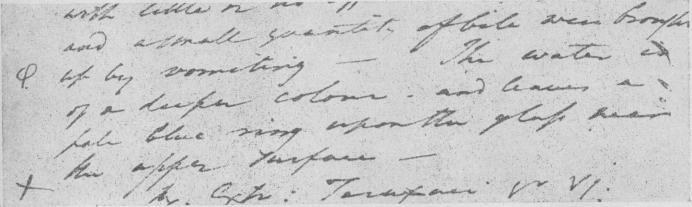 with little or no
and a small quantity of bile was brought
up by vomiting — The water is
of a deeper colour - and leaves a
pale blue ring upon the glass near
the upper surface —
Extr: Taraxaci gr VI.